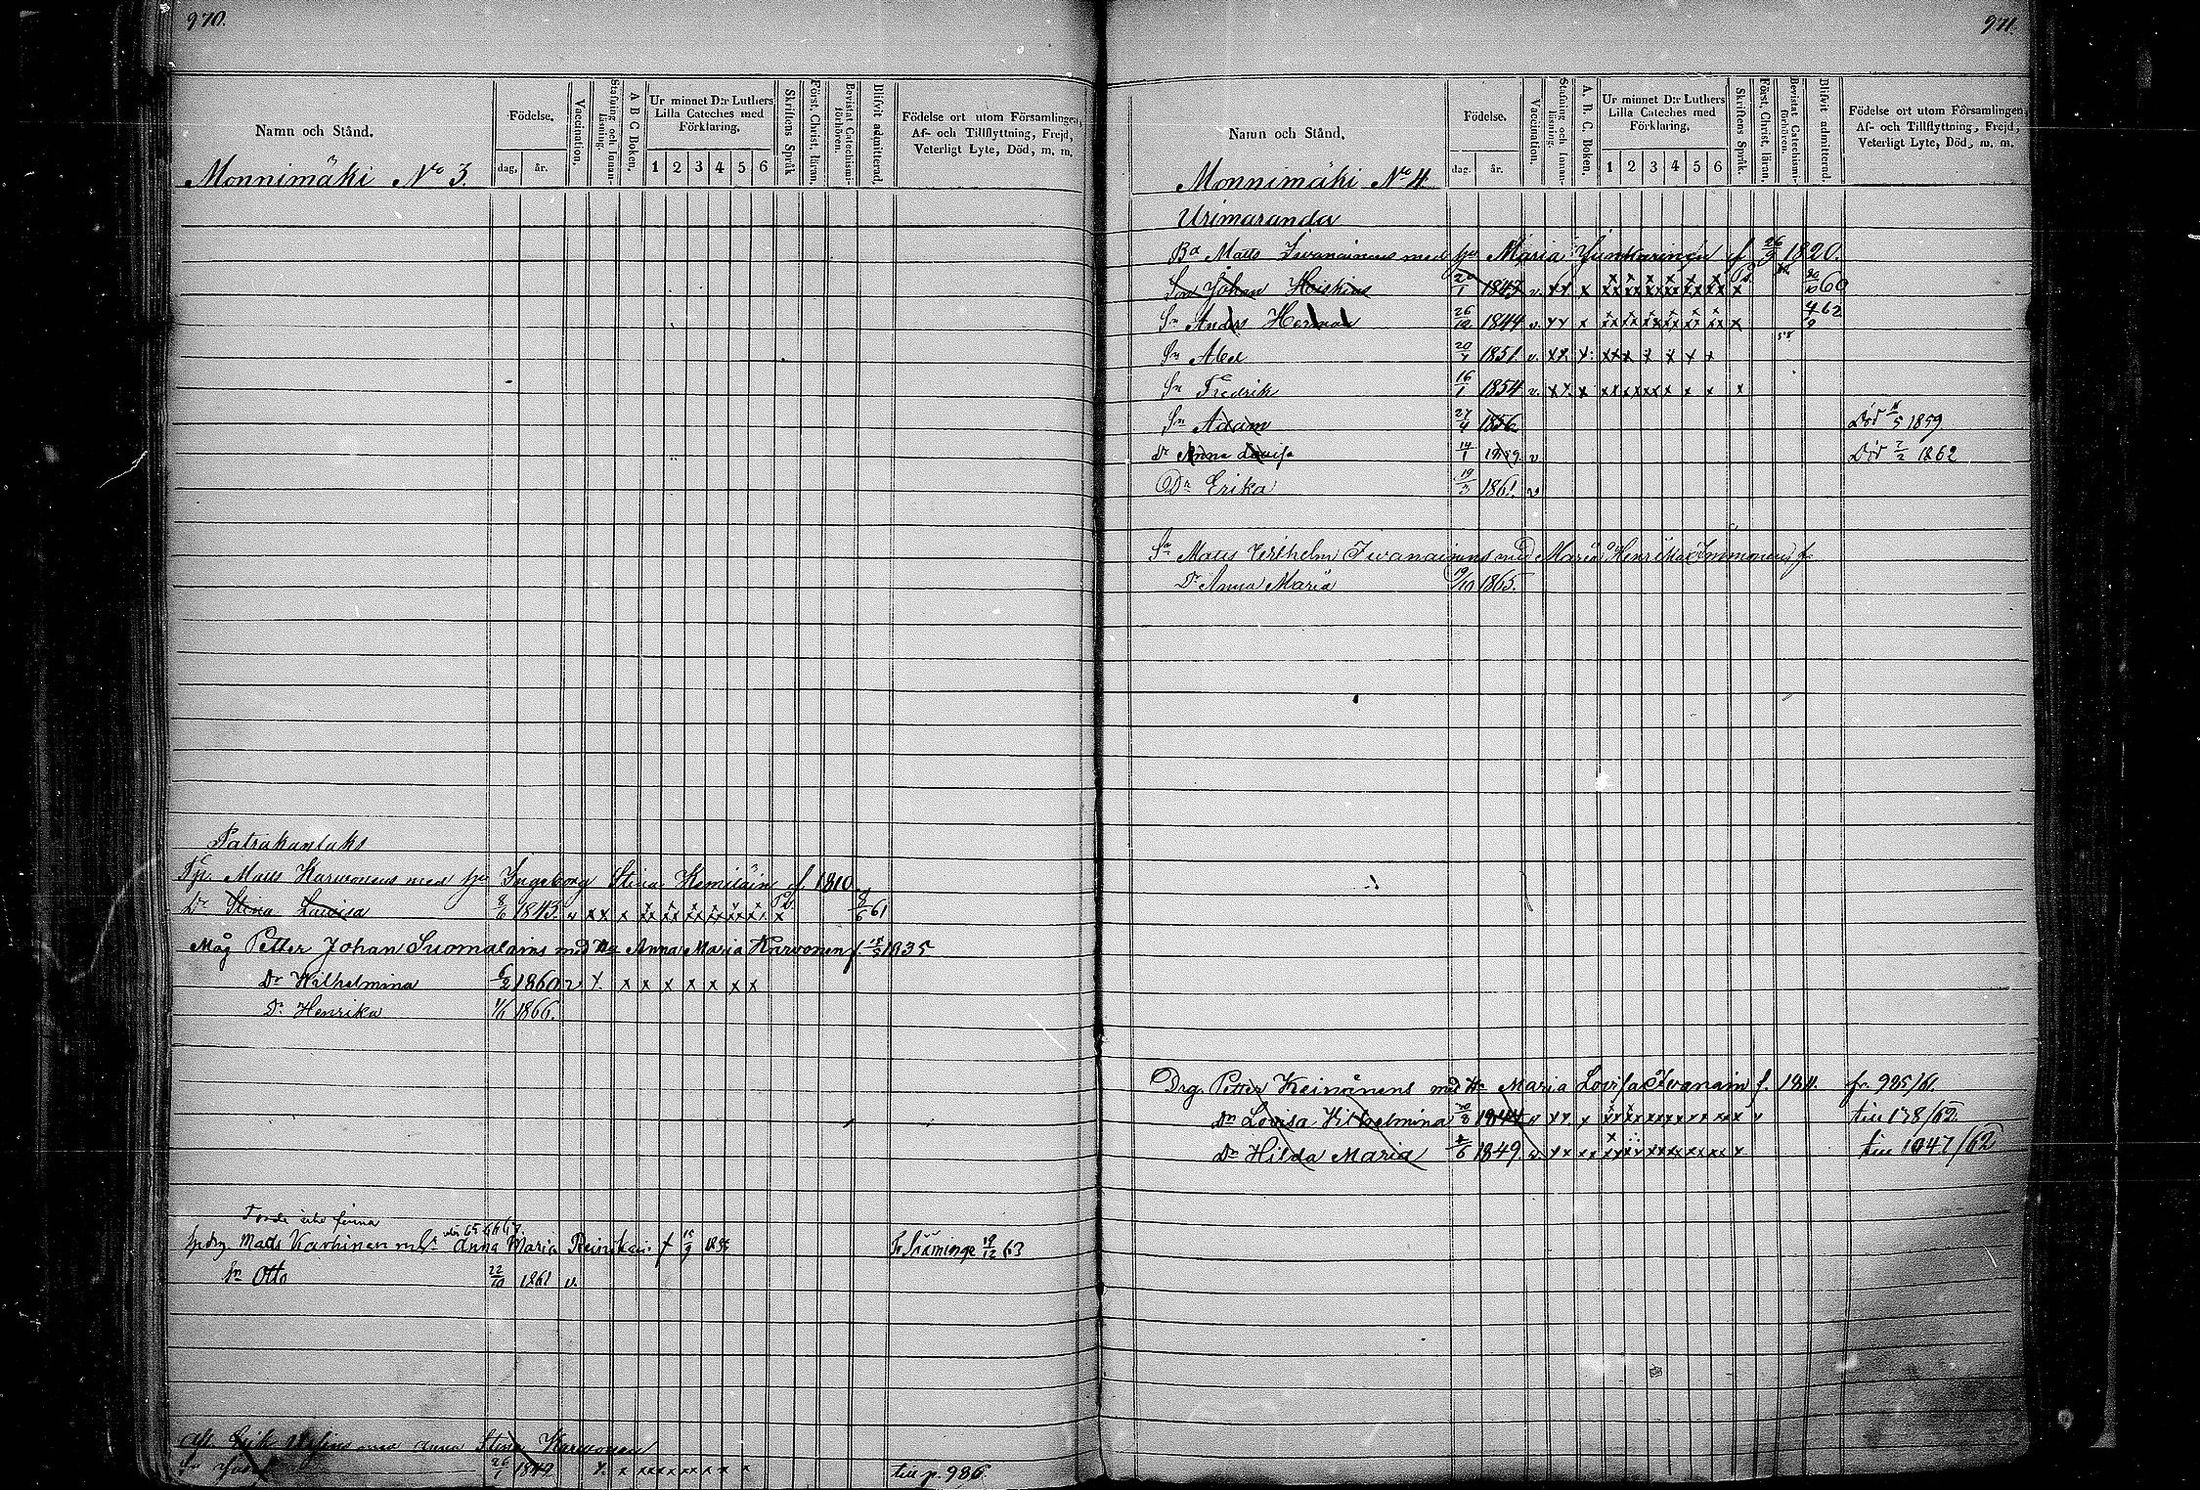 970.
Namn och Stånd.
Födelse.
dag. år.
Vaccination.
Stafning och Innanläsning.
A B C Boken.
Ur minnet D:r Luthers Lilla Cateches med Förklaring,
1 2 3 4 5 6
Skriftens Språk
Först. Christ. läran.
Bevistat Catechismiförhören.
Blifvit admitterad,
Födelse ort utom Församlingen, Af- och Tillflyttning, Frejd, Veterligt Lyte, Död, m. m.
Monnimäki No 3.
Patrakanlaks
Matts Karvonens med hu Ingeborg Stina Kemiläin f. 1810
Dr Stina Lauisa 8/6 1843. v x x x 8/6 61
Måg Petter Johan Suomalains med Hu Anna Maria Karvonen f. 1835
Dr Wilhelmina 6/2 1860 v x x x x x x x x
Dr Henrika 1/6 1866.
Torde icke finna
Matts Karhinen Anna Maria Reinikai f
Fr Sääminge 19/12 63
Sn Otto 22/10 1861 v.
Erik Anna Stina Karvonen
26/1 1849 x x x x x x x x x
till p. 986
971.
Namn och Stånd,
Födelse.
dag. år.
Vaccination.
Stafning och Innanläsning.
A. B. C. Boken.
Ur minnet D:r Luthers Lilla Cateches med Förklaring,
1 2 3 4 5 6
Skriftens Språk.
Först. Christ. läran.
Bevistat Catechismiförhören.
Blifvit admitterad.
Födelse ort utom Församlingen, Af- och Tillflyttning, Frejd, Veterligt Lyte, Död, m. m.
Monnimäki No 4
Urimaranda
Matts Iwanainens med hu Maria Junkarinen f 26/3 1820.
Son Johan 1847 v. x x x 60
Sn Anders Herman 26/12 1844 v. x x x 62
Sn Abel 20/4 1851. v. x x. x x x x x x x x
Sn Fredrik 16/1 1854 v. x x. x x x x x x x x x x
Sn Adam 27/4 1856 Död 11/5 1859
Dr Anna Louisa 14/1 1859 v Död 7/2 1862
Dr Erika 19/3 1861. v
Sn Matts Vilhelm Iwanainens med Maria Henrika Immonen f.
Dr Anna Maria 19/10 1865.
Drg. Petter Keinänens med Hu Maria Lovisa Iwanain f. 1811. fr. 985/61.
Dr Lovisa Vilhelmina 1844 v x x. x till 178/62
Dr Hilda Maria 1849. v. x x till 1047/62